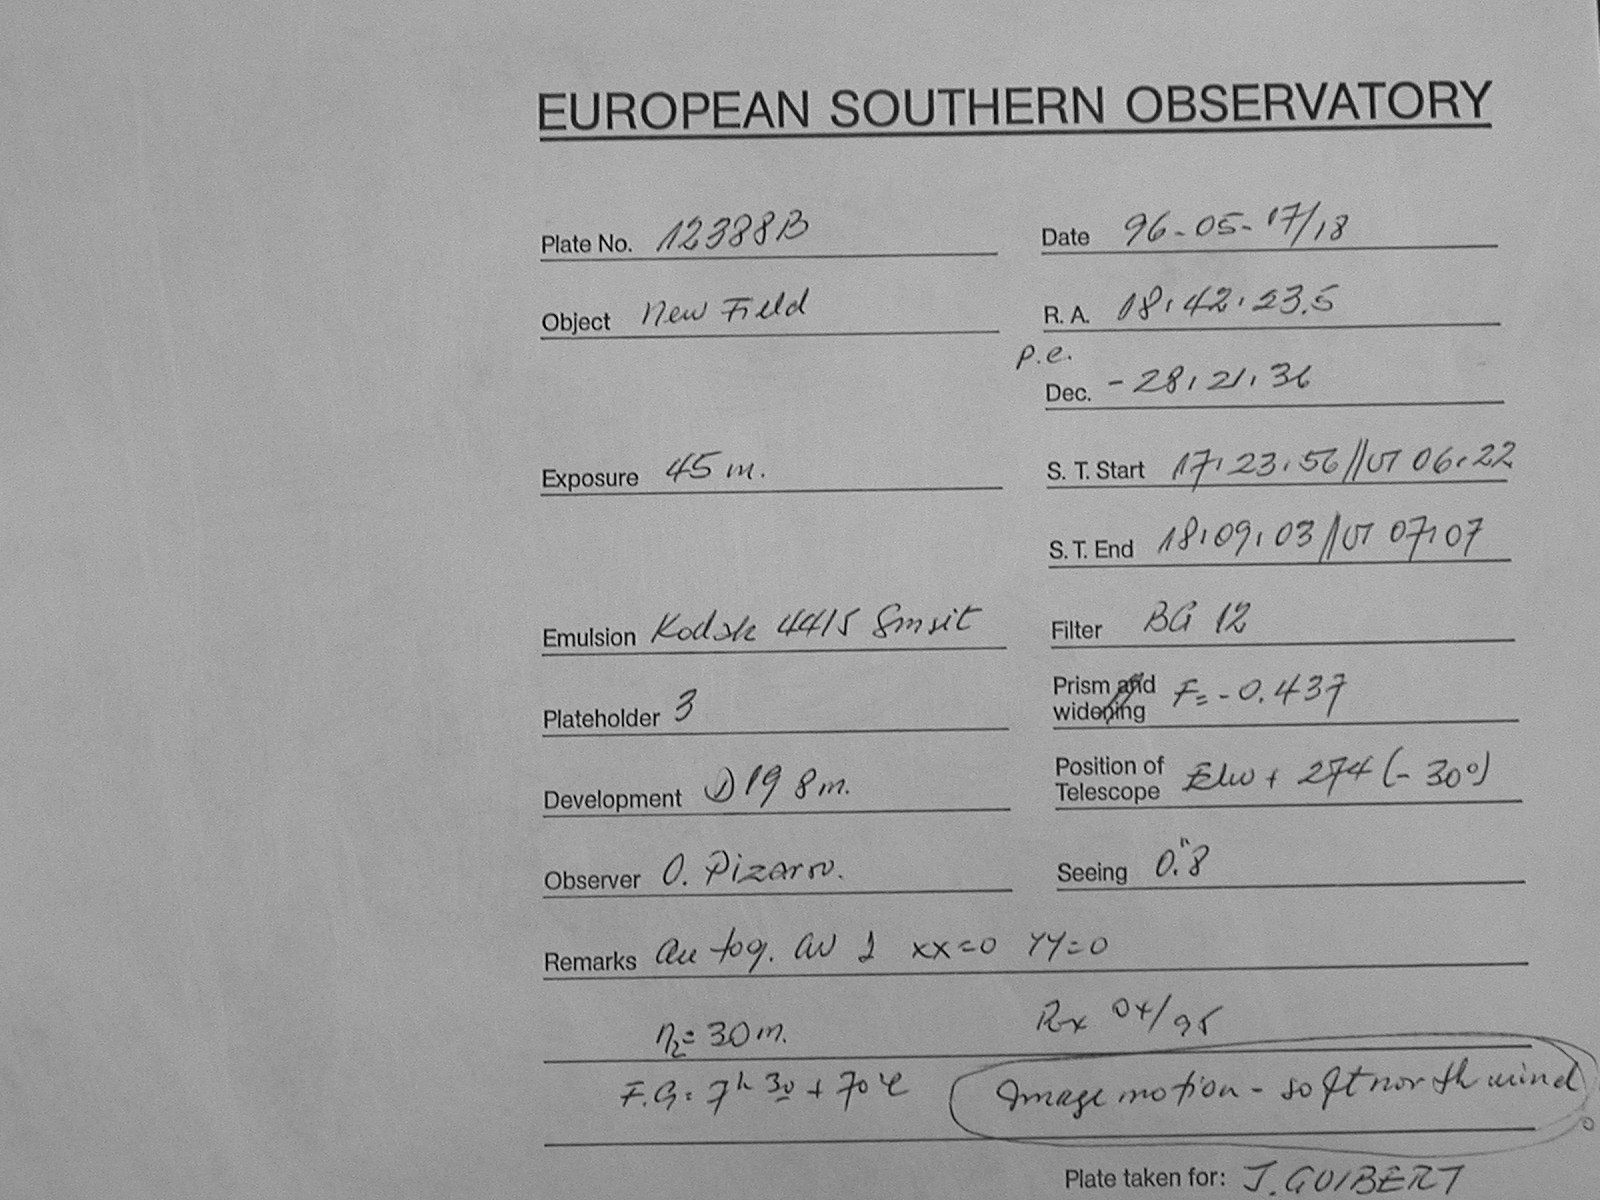 EUROPEAN SOUTHERN OBSERVATORY
Plate No. 12388B Date 96-05-17/18
Object New Field R. A. 18:42:23.5
p.e.
Dec. -28:21:36
Exposure 45 m. S. T. Start 17:23:56//UT 06:22
S. T. End 18:09:03//UT 07:07
Emulsion Kodak 4415 Filter BG 12
Plateholder 3 Prism and widening F= -0.437
Development D19 8m. Position of Telescope + 274 (-30°)
Observer O. Pizarro. Seeing 0."8
Remarks Autog. xx=0 YY=0
N2= 30 m.
F.G: 7h 30 + 70°C Image motion - soft north wind
Plate taken for: J. GUIBERT